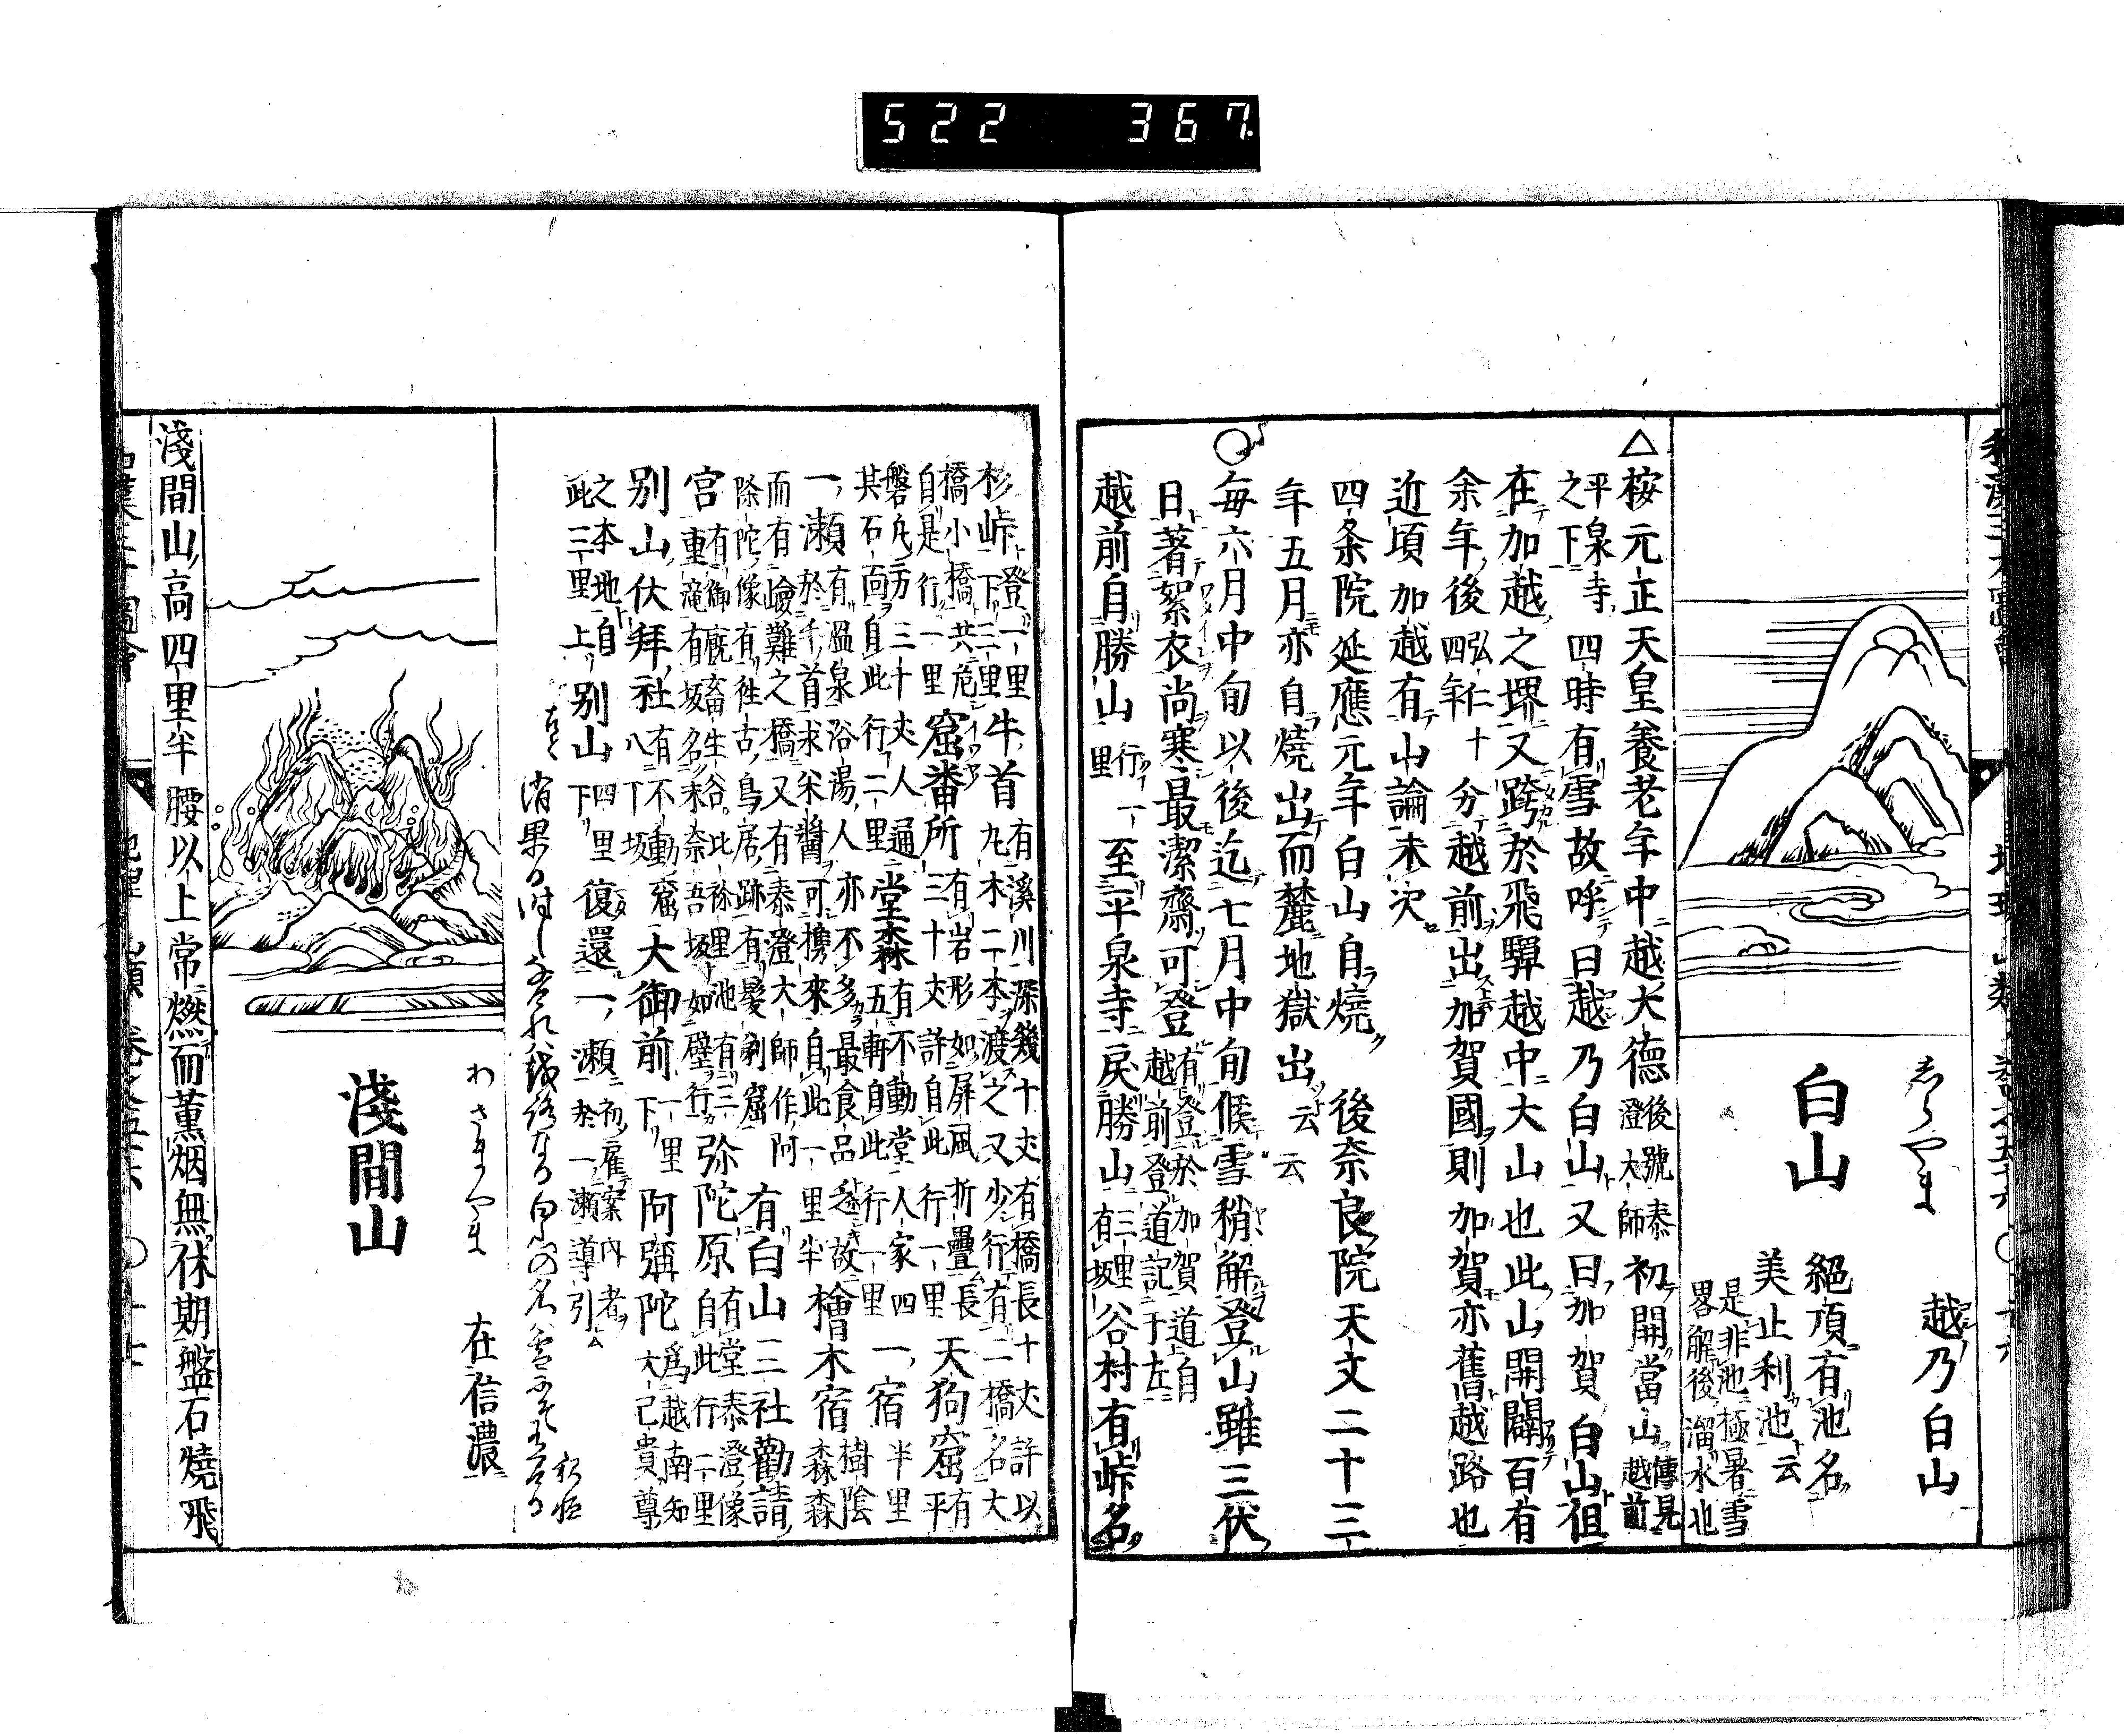 522 367
地理 山類 卷之五十六 〇二十六
しらやま 越乃白山
白山
絕頂有池名
美止利池云
是非池極暑雪
畧解後溜水也
△桉元正天皇養老年中越大德後號泰澄大師初開當山傳見越前
平泉寺之下四時有雪故呼曰越乃白山又曰加賀白山徂
在加越之堺又跨於飛驒越中大山也此山開闢百有
余年後弘仁十四年分越前出加賀國則加賀亦舊越路也
近頃加越有山論未決
四条院延應元年白山自燒 後奈良院天文二十三
年五月亦自燒出而麓地獄出云云
〇每六月中旬以後迄七月中旬候雪稍解登山雖三伏
日著絮衣尚寒最潔齋可登有登於加賀道自越前登道記于左
越前自勝山行一里至平泉寺戾勝山三里有坂谷村有峠名
杉峠登一里下三里牛首有溪川深幾十丈有橋長十丈許以九木二本渡之又少行有一橋名大
橋小橋共危自是行一里窟番所有岩形如屏風折疊長三十丈許自此行一里天狗窟有平
磐凡方三十丈人通其石面自此行二里堂森有不動堂人家四五軒自此行一里一宿半里
一瀨有溫泉浴湯人亦不多最食品乏故於千首求米醬可攜來自此一里半檜木宿樹陰森森
而有嶮難之橋又有泰澄大師作阿陀像有往古鳥居跡有髮剃窟有白山三社勸請
宮有御廐畜生谷此條里池有三重滝有坂名未奈吾坂如壁行弥陀原有堂泰澄像自此行二里
別山伏拜社有不動窟八丁坂大御前下一里阿彌陀爲越南知大己貴尊
之本地自此三里上別山下四里復還一瀨初雇案内者於一瀨導引
淺間山
あさまやま 在信濃
淺間山高四里半腰以上常燃而薰烟無休期盤石燒飛
地理 山類 卷之五十六 〇二十七